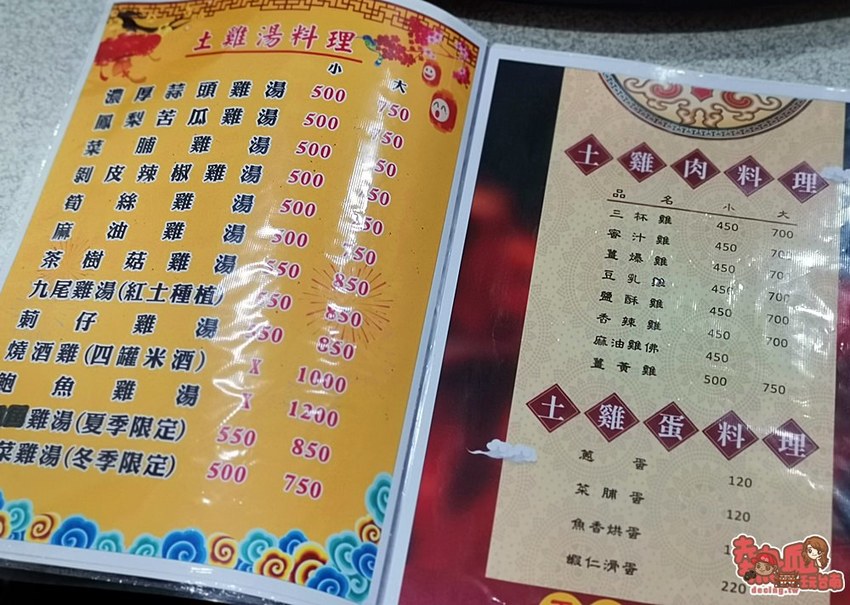 土雞湯料理
小 大
濃厚蒜頭雞湯 500 750
鳳梨苦瓜雞湯 500 750
菜脯雞湯 500 750
剝皮辣椒雞湯 500 750
筍絲雞湯 500 750
麻油雞湯 500 750
茶樹菇雞湯 550 850
九尾雞湯(紅土種植) 550 850
莿仔雞湯 550 850
燒酒雞(四罐米酒) X 1000
鮑魚雞湯 X 1200
雞湯(夏季限定) 550 850
菜雞湯(冬季限定) 500 750
土雞肉料理
品名 小 大
三杯雞 450 700
蜜汁雞 450 700
薑爆雞 450 700
豆乳雞 450 700
鹽酥雞 450 700
香辣雞 450 700
麻油雞佛 450
薑黃雞 500 750
土雞蛋料理
蔥蛋 120
菜脯蛋 120
魚香烘蛋
蝦仁滑蛋 220
熱血玩台南
decing.tw